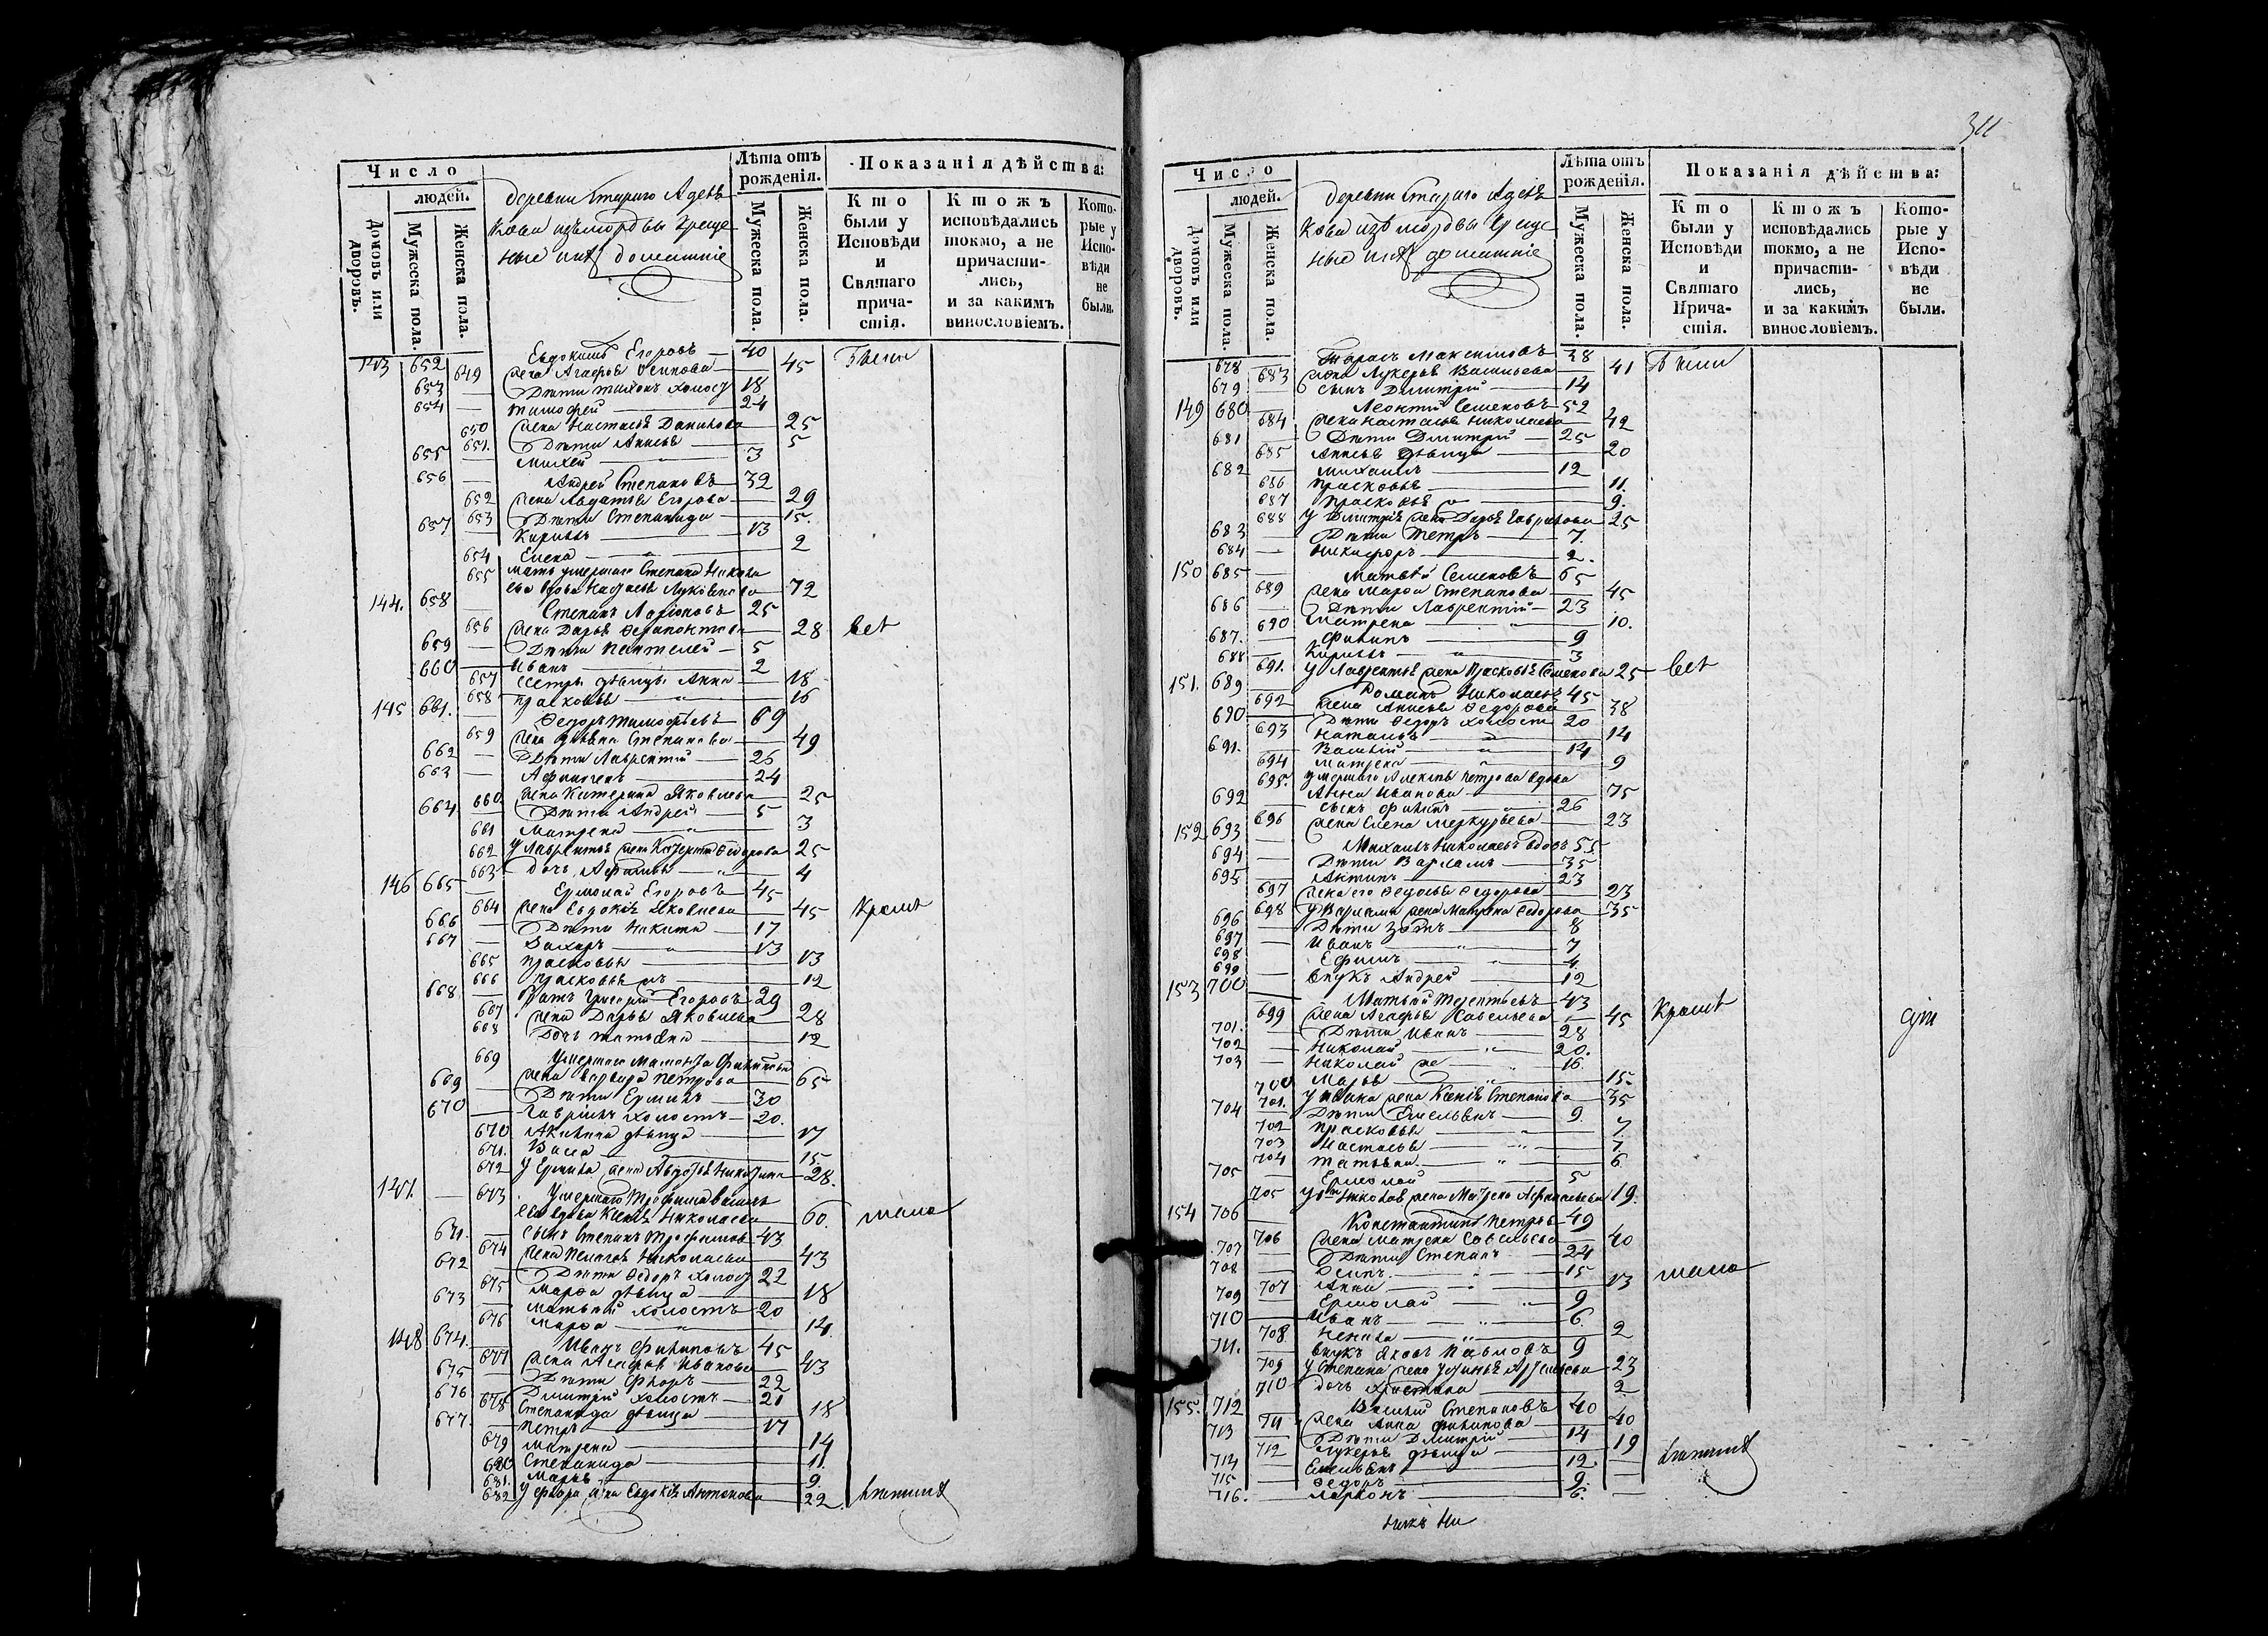 311
Число
людей.
Домовъ или дворовъ.
Мужеска пола.
Женска пола.
деревни Стараго Адель
кова изъ мордвы креще
ные и ихъ домашніе
Лѣта отъ рожденія.
Мужеска пола.
Женска пола.
Показанія дѣйства:
Кто были у Исповѣди и Святаго причастія.
Ктожъ исповѣдались токмо, а не причастились, и за какимъ винословіемъ.
Которые у Исповѣди не были.
143 652 Евдокимъ Егоровъ 40 Были
649 жена Агафья Осипова 45
653 Дѣти Тихонъ холост 18
654 Тимофей 24
650 жена Настасья Данилова 25
651. Дѣти Анисья 5
655 Михей 3
656 Андрей Степановъ 32
652 жена Авдотья Егорова 29
653 Дѣти Степанида 15.
657 Кирилъ 13
654 Елена 2
655 мать умершаго Степана
вдова 72
144. 658 Степанъ Ларіоновъ 25
656 жена Дарья 28 вст
659 Дѣти Пантелей 5
660 Иванъ 2
657 Сестры дѣвицы Анна 18
658 Прасковья 16
145 661. Федоръ Тимофѣевъ 69
659 жена Степанова 49
662 Дѣти Лаврентій 26
663 24
660 жена Катерина Яковлева 25
664 Дѣти Андрей 5
661 Матрена 3
662 У Лаврентья жена Федорова 25
663 дочь 4
146 665 Ермолай Егоровъ 45
664 жена Евдокія Яковлева 45 Кромѣ
666 Дѣти Никита 17
667 Захаръ 13
665 Прасковья 13
666 Прасковья 12
668 Братъ Григорій Егоровъ 29
667 жена Дарья Яковлева 28
668 Дочь Татьяна 12
669 Умершаго
жена Варвара Петрова 65
669 Дѣти Ермилъ 30
670 Гаврилъ холостъ 20.
670 Акилина дѣвица 17
671. Васса 15
672 У Ермила жена Авдотья 28.
147. 673 Умершаго Трофима
вдова Ксенія Николаева 60. мало
671. сынъ Степанъ Трофимов 43
674 жена Пелагея Николаева 43
672 Дѣти Федоръ холост 22
675 Марфа дѣвица 18
673 Матвѣй холостъ 20
676 Марфа 14
148 674. Иванъ Филиповъ 45
677 жена Агафья Иванова 43
675 Дѣти Флоръ 22
676 Дмитрій холостъ 21
678 Степанида дѣвица 18
677. Петръ 17
679 Матрена 14
680 Степанида 11.
681. Марья 9.
682 У Флора жена Евдокія Антонова 22
Число
людей.
Домовъ или дворовъ.
Мужеска пола.
Женска пола.
деревни Стараго Адель
кова изъ мордвы креще
ные и ихъ домашніе
Лѣта отъ рожденія.
Мужеска пола.
Женска пола.
Показанія дѣйства:
Кто были у Исповѣди и Святаго Причастія.
Ктожъ исповѣдались токмо, а не причастились, и за какимъ винословіемъ.
Которые у Исповѣди не были.
678 Тарасъ Максимовъ 38 Были
683 жена Лукерья Васильева 41
679 сынъ Димитрій 14
149 680 Леонтій Семеновъ 52
684 жена Настасья Николаева 42
681 Дѣти Дмитрій 25
685 Анисья дѣвица 20
682 Михаилъ 12
686 Прасковья 11.
687 Прасковья 9.
688 У Дмитрія жена Дарья Гаврилова 25
683 Дѣти Петръ 7.
684 Никифоръ 2.
150 685 Матвѣй Семеновъ 65
689 жена Марфа Степанова 45
686 Дѣти Лаврентій 23
690 Матрена 10.
687. Филипъ 9
688 Кирилъ 3
691. У Лаврентья жена Прасковья Семенова 25 вст
151. 689 Романъ Николаевъ 45
692 жена Анисья Федорова 38
690 Дѣти Федоръ холост 20
693 Наталья 14
691. Василій 14
694 Матрена 9
695. Умершаго Алексѣя Петрова вдова
Анна Иванова 75
692 сынъ Филипъ 26
696 жена Елена Меркурьева 23
152 693 Михаилъ Николаевъ вдовъ 55
694 Дѣти Варламъ 35
695 Антипъ 23
697 жена его Федосья Федорова 23
698 У Варлама жена Матрена Федорова 35
696 Дѣти 8
697 Иванъ 7
698 Ефимъ 4
699 внукъ Андрей 12
153 700 Матвѣй 43
699 жена Агафья Савельева 45 Кромѣ
701. Дѣти Иванъ 28
702 Николай 20.
703 Николай же 16.
700 Марья 15.
701. У Ивана жена Ксенія Степанова 35
704 Дѣти Емельянъ 9.
702 Прасковья 7.
703 Настасья 7
704 Татьяна 6
705 Ермолай 5
705 У Николая жена Матрена Афанасьева 19.
154 706 Константинъ Петровъ 49
706 жена Матрена Савельева 40
707 Дѣти Степанъ 24
708 Осипъ 15
707 Анна 13 мало
709 Ермолай 9
710 Иванъ 6.
708. Ненила 2
711. внукъ Яковъ Павловъ 9
709 У Степана жена 23
710 дочь Христина 2
155. 712 Василій Степановъ 40
711 жена Анна Филипова 40
713 Дѣти Дмитрій 14
712 Лукерья дѣвица 19
714 Емельянъ 12
715 Федоръ 9.
716. Ларіонъ 6.